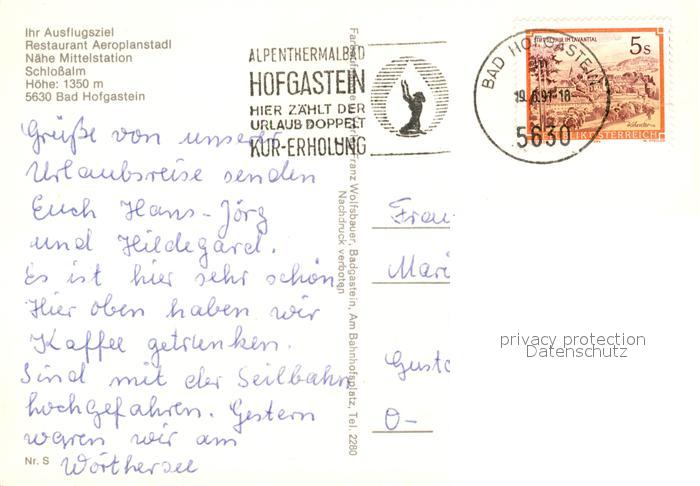 Ihr Ausflugsziel
Restaurant Aeroplanstadl
Nähe Mittelstation
Schloßalm
Höhe: 1350 m
5630 Bad Hofgastein
ALPENTHERMALBAD
HOFGASTEIN
HIER ZÄHLT DER
URLAUB DOPPELT
KUR-ERHOLUNG
BAD HOFGASTEIN
19.6.91-18
5630
5s
IM LAVANTTAL
REPUBLIK ÖSTERREICH
Grüße von unserer
Urlaubsreise senden
Euch Hans-Jörg
und Hildegard.
Es ist hier sehr schön
Hier oben haben wir
Kaffee getrunken.
Sind mit der Seilbahn
hochgefahren. Gestern
waren wir am
Wörthersee
Nr. S
Franz Wolfsbauer, Badgastein, Am Bahnhofsplatz, Tel. 2280
Nachdruck verboten
Frau
Mari
Gusta
O-
privacy protection
Datenschutz